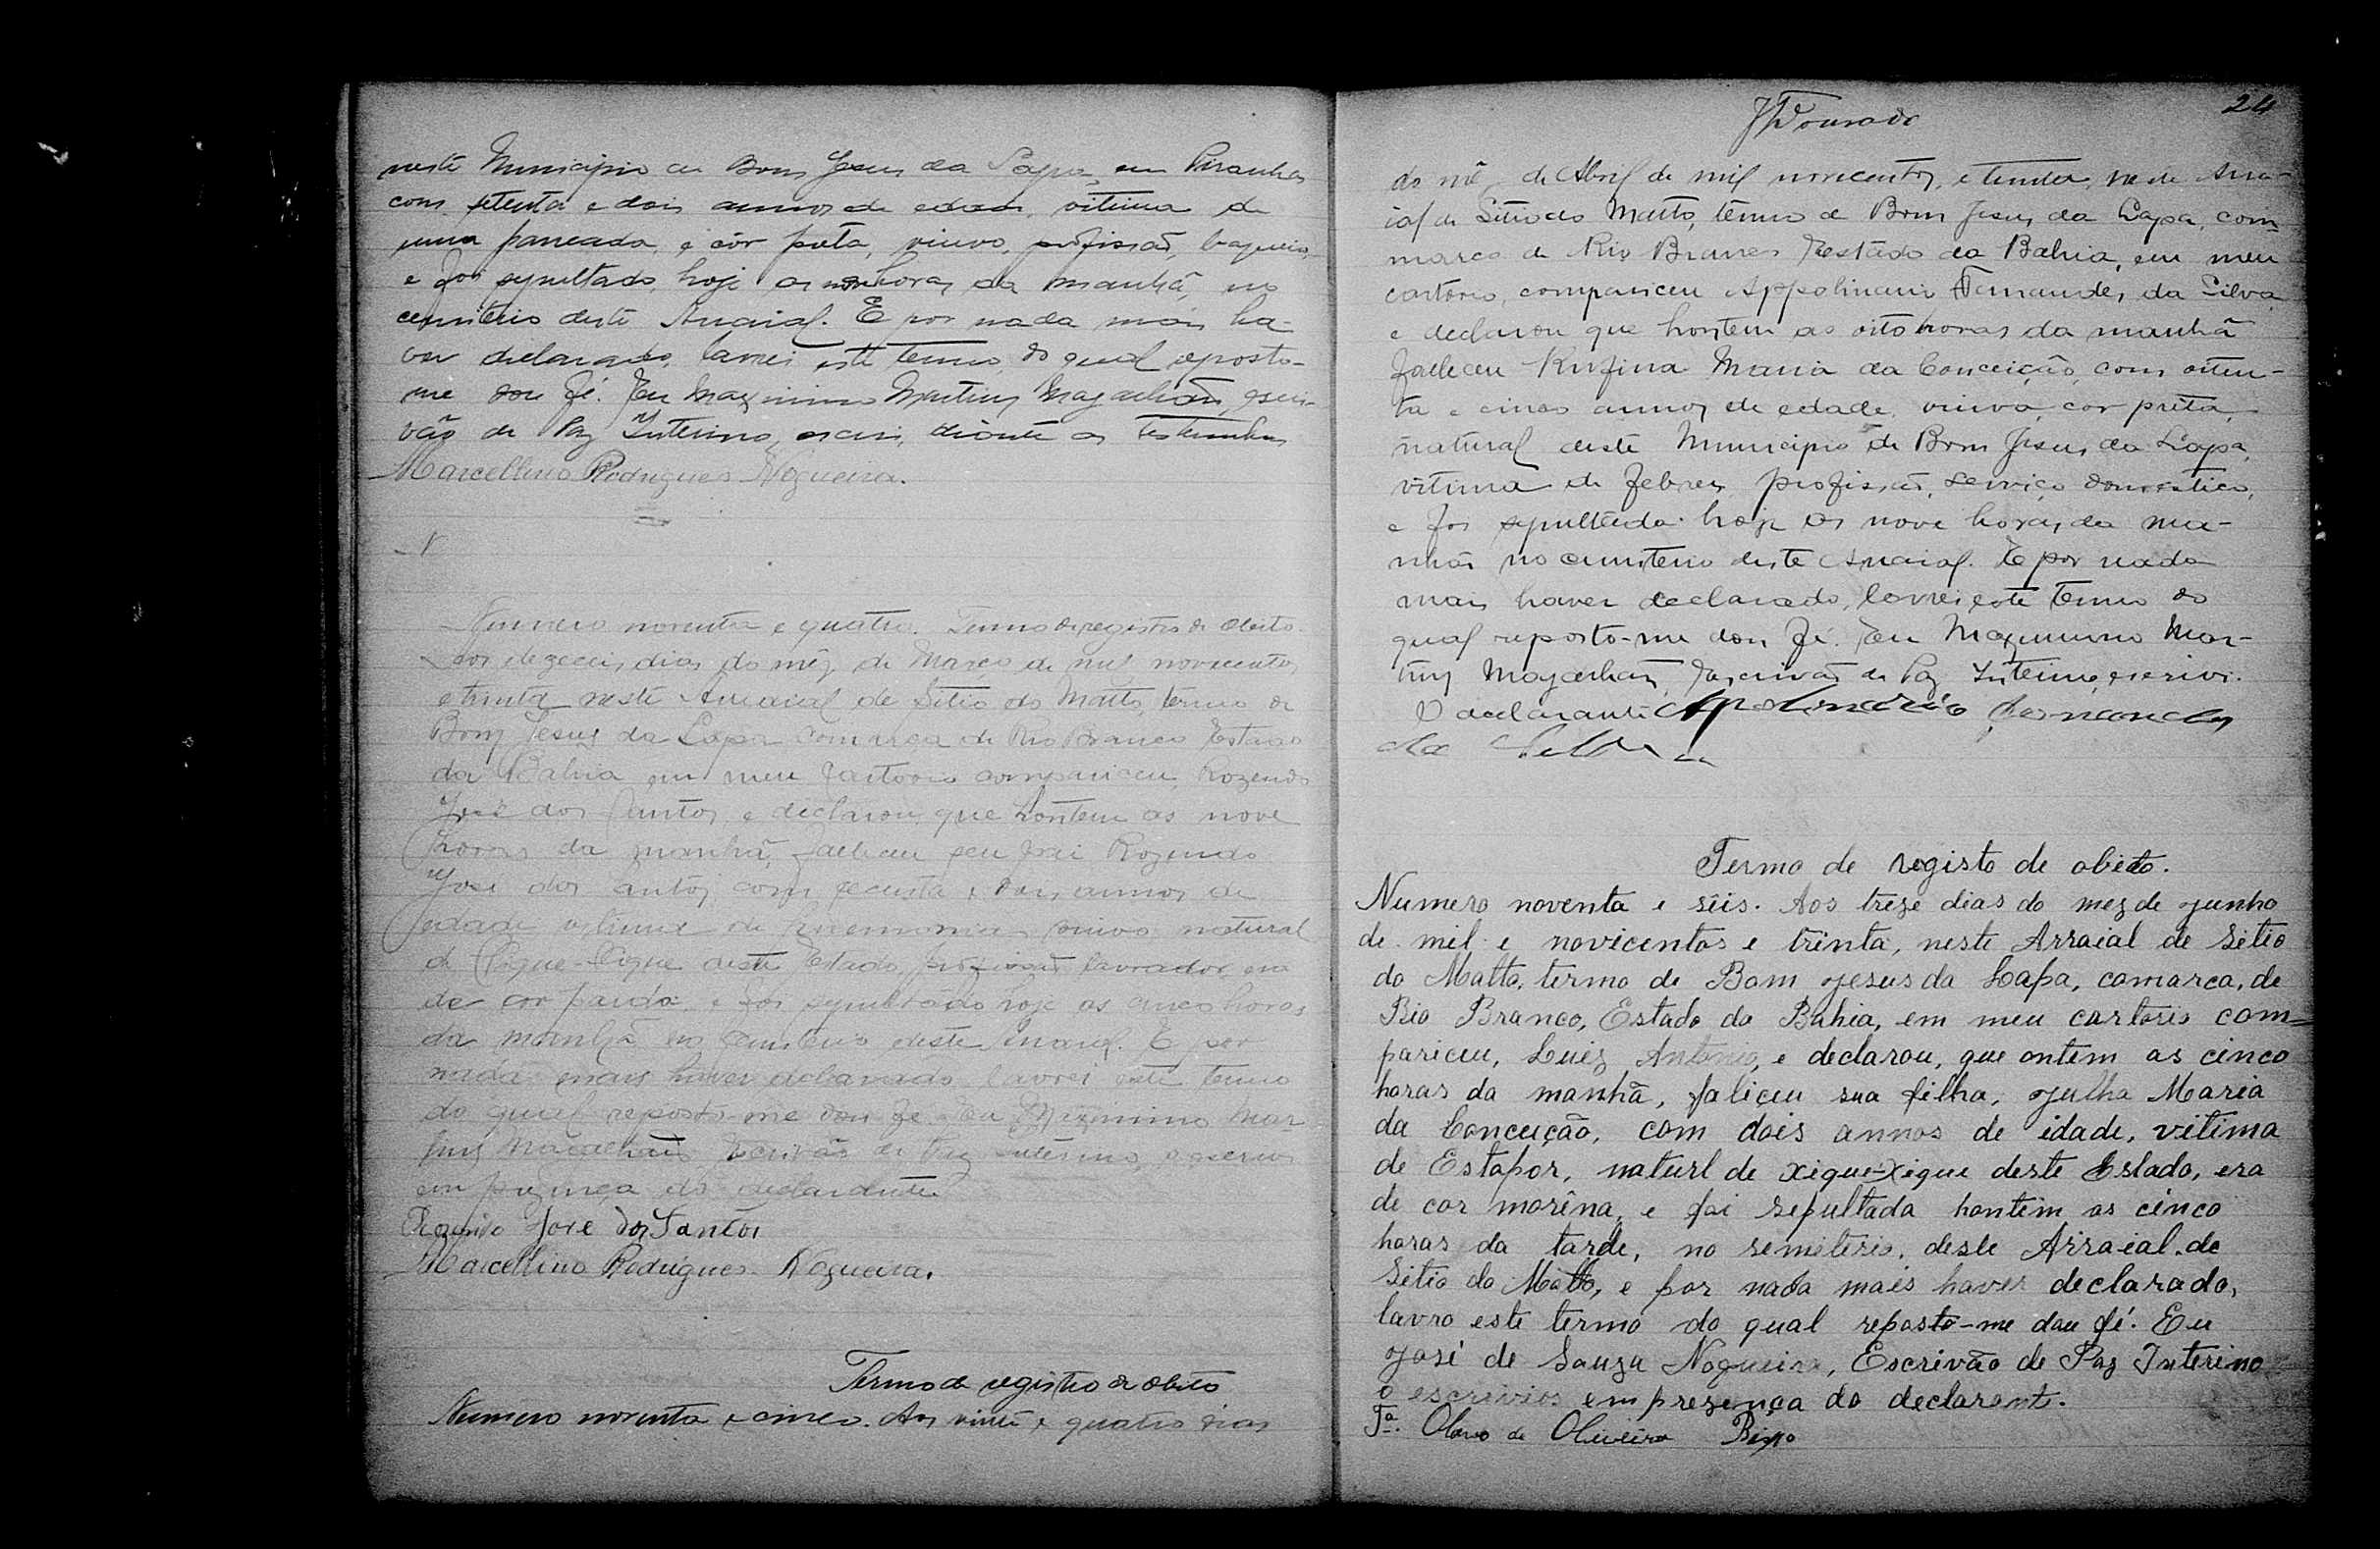 neste Municipio de Bom Jesus da Lapa, em Piranhas
com setenta e dois annos de edade, vitima de
uma pancada, e côr preta, viuvo, profissão, vaqueiro,
e foi sepultado, hoje as nove horas da manhã, no
cemiterio deste Arraial. E por nada mais ha-
ver declarado, lavrei este termo, do qual reposto-
me dou fé. Eu Maximino Martins Magalhães, escri-
vão de Paz Interino, escrivi, diante as testemunhas
Marcellino Rodrigues Nogueira.
N
Numero noventa e quatro. Termo de registro de obito.
Aos dezeceis dias do mêz de Março de mil novecentos
e trinta neste Arraial de Sitio do Matto, termo de
Bom Jesus da Lapa comarca de Rio Branco Estado
da Bahia em meu Cartorio compariceu, Rozendo
José dos Santos, e declarou, que hontem as nove
horas da manhã, falleceu seu pai Rozendo
José dos Santos com secenta e dois annos de
edade vitima de pneumonia viuvo natural
de Chique-Chique deste Estado, profissão lavrador era
de cor parda e foi sepultado hoje as cinco horas
da manhã no cemiterio deste Arraial. E por
nada mais haver declarado lavrei este termo
do qual reposto-me dou fé. Eu Maximino Mar-
tins Magalhães Escrivão de Paz interino, o escrivi
em prezença do declarante
Rozendo José dos Santos
Marcellino Rodrigues Nogueira.
Termo de registro de obito
Numero noventa e cinco. Aos vinte e quatro dias
24
JDourado
do mê de Abril de mil novecentos, e trinta, neste Arra-
ial de Sitio do Matto, têrmo de Bom Jesus da Lapa, com-
marca de Rio Branco Estado da Bahia, em meu
cartorio, compariceu Appolinario Fernandes da Silva
e declarou que hontem as oito horas da manhã
falleceu Rufina Maria da Conceição, com oiten-
ta e cinco annos de edade, viuva, cor preta,
natural deste Municipio de Bom Jesus da Lapa,
vitima de febres, profissão, serviço domestico,
e foi sepultada hoje as nove horas da ma-
nhã no cemiterio deste Arraial. E por nada
mais haver declarado, lavrei este termo do
qual reposto-me dou fé. Eu Maximino Mar-
tins Magalhães, Escrivão de Paz Interino, escrivi.
O declarante Apolinario Fernandes
da Silva
Termo de registo de obito.
Numero noventa e sêis. Aos trêze dias do mez de Junho
de mil e novicentos e trinta, neste Arraial de Sitio
do Matto, termo de Bom Jesus da Lapa, comarca, de
Rio Branco, Estado da Bahia, em meu cartorio com=
pariceu, Luiz Antonio, e declarou, que ontem as cinco
horas da manhã, faliceu sua filha, Julha Maria
da Conceição, com dois annos de idade, vitima
de Estapor, naturl de xique-xique deste Estado, era
de cor morêna, e foi sepultada hontem as cinco
horas da tarde, no semiterio, deste Arraial de
Sitio do Matto, e por nada mais haver declarado,
lavro este termo do qual reposto-me dou fé. Eu
José de Souza Nogueira, Escrivão de Paz Interino
o escrivios em presença do declarant.
Tª. Olavo de Oliveira